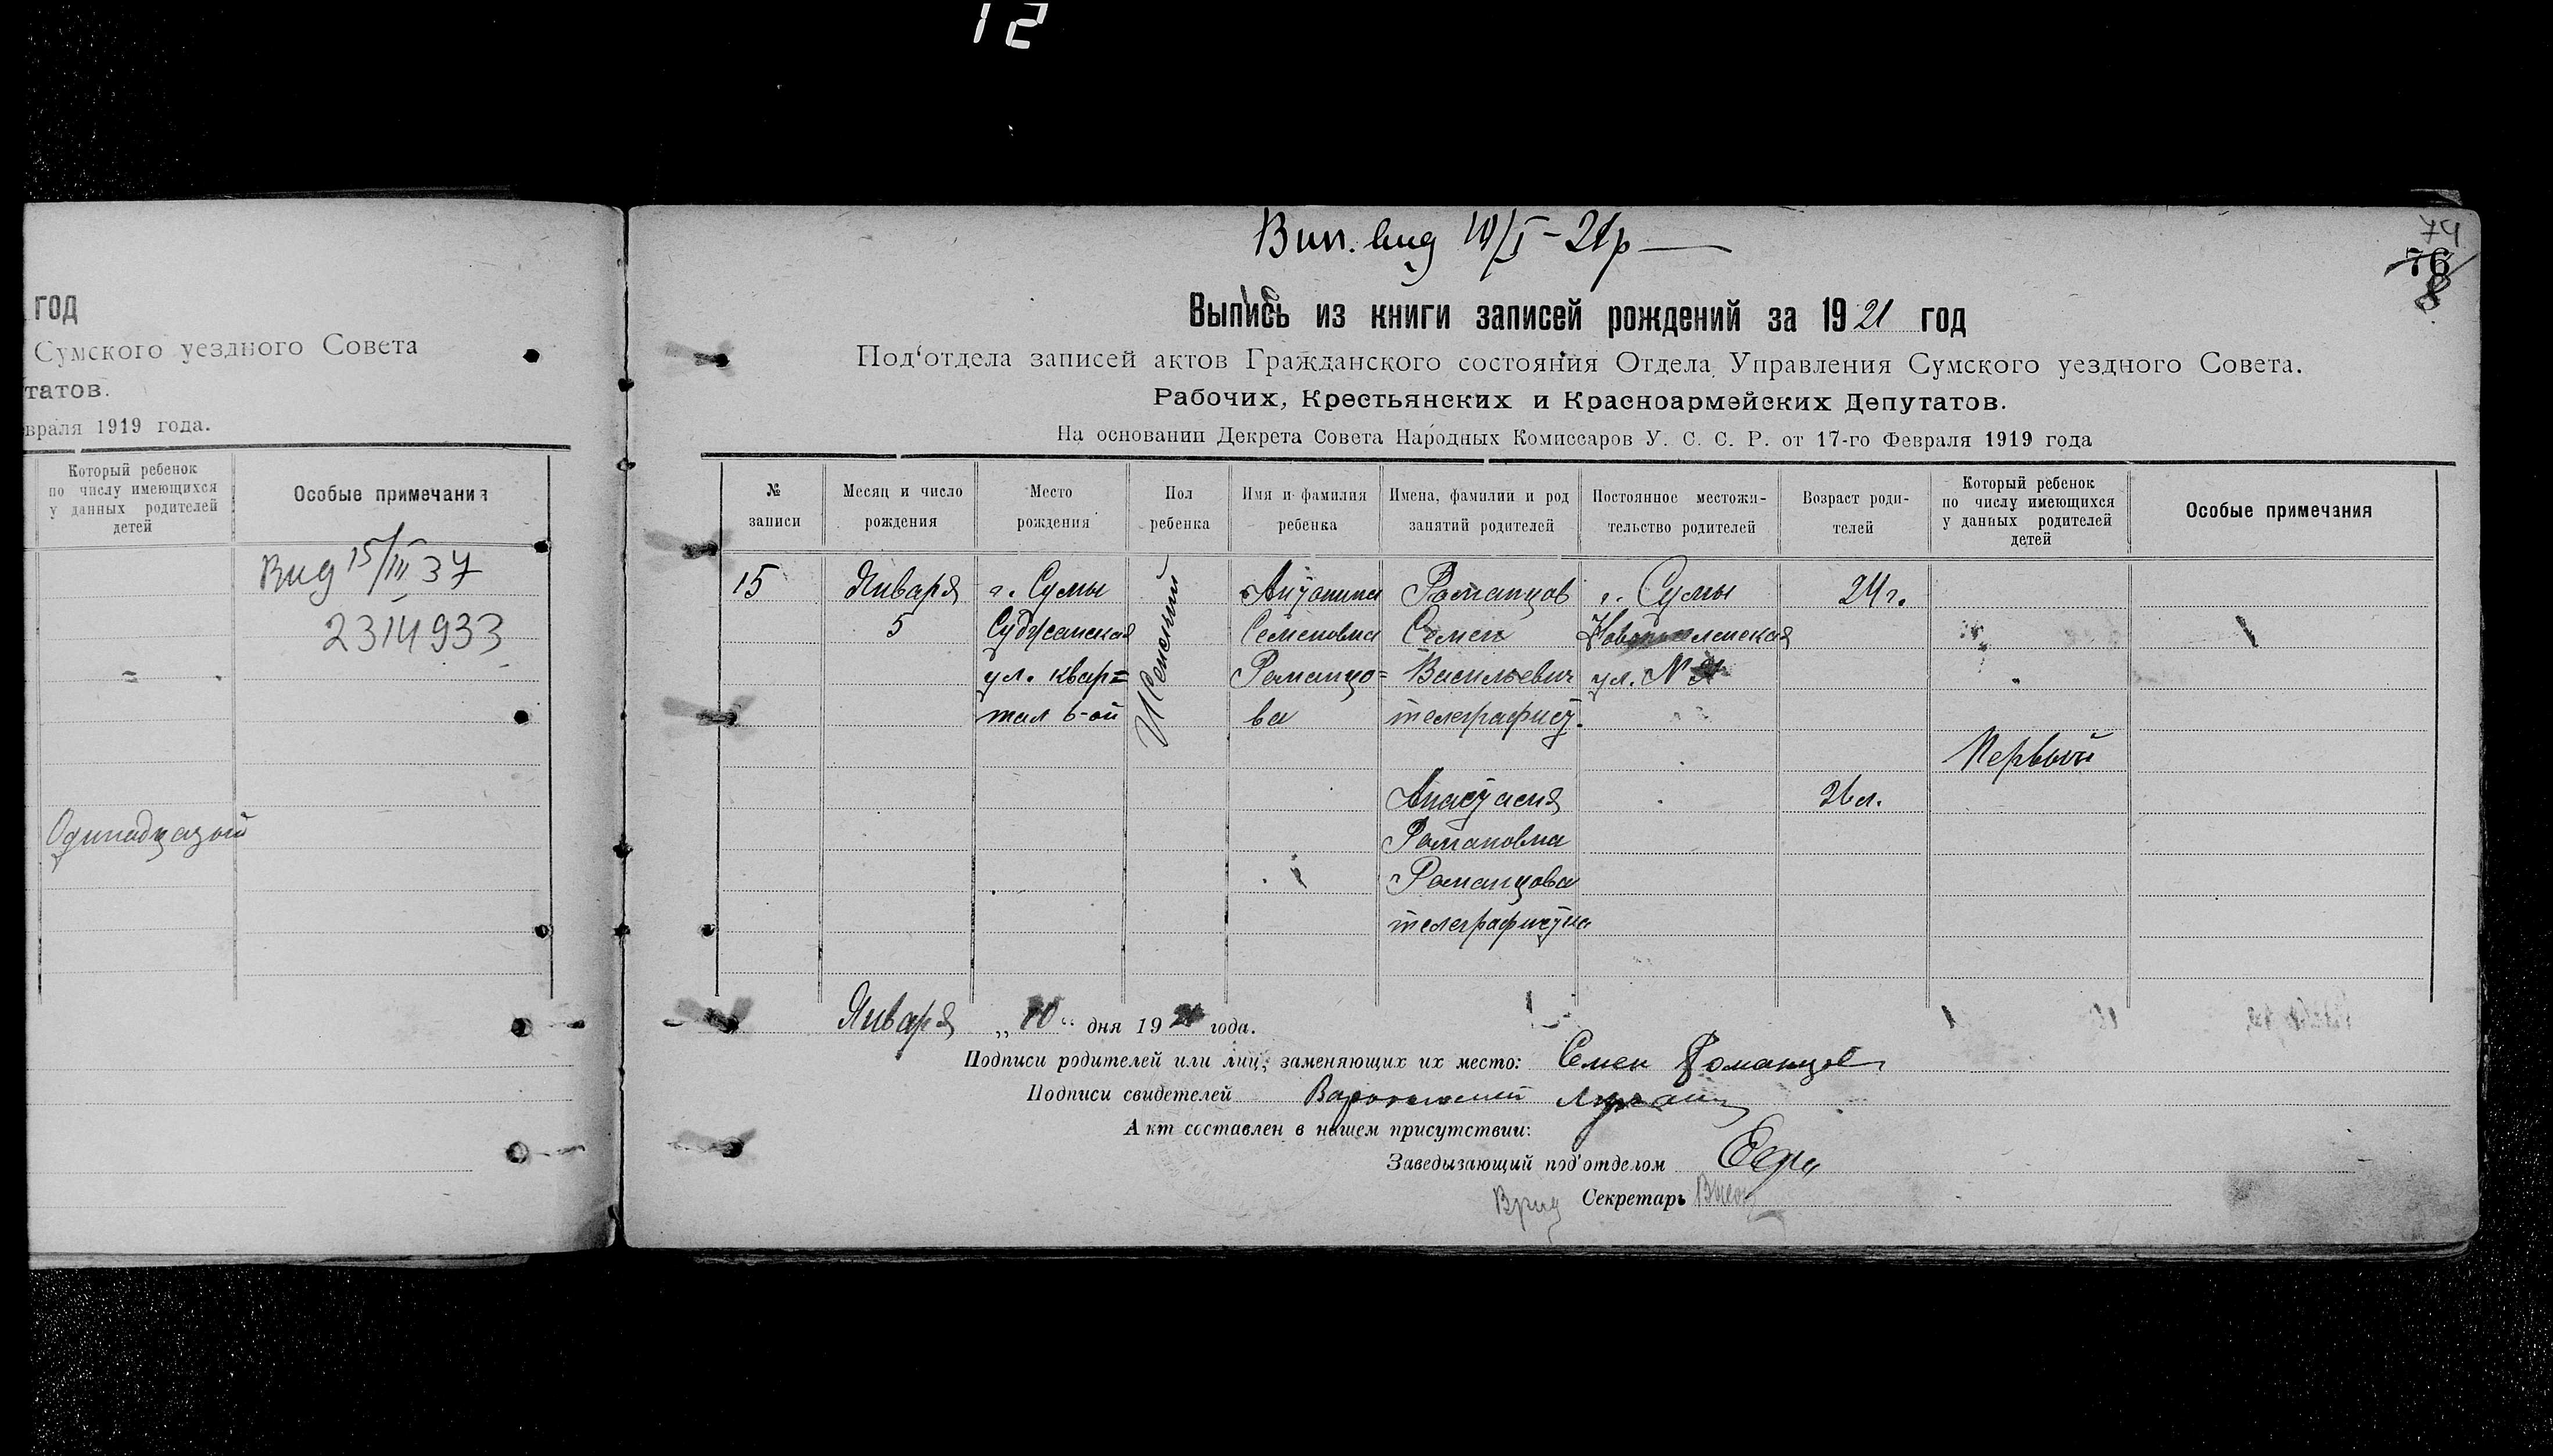 12
год
Сумского уездного Совета
татов.
враля 1919 года.
Который ребенок
по числу имеющихся
у данных родителей
детей
Особые примечания
Вид 15/III 37
2314933
Одинадцатый
Вип. вид 19/I - 21р
74
76
8
Выпись из книги записей рождений за 1921 год
Под‘отдела записей актов Гражданского состояния Отдела Управления Сумского уездного Совета.
Рабочих, Крестьянских и Красноармейских Депутатов.
На основании Декрета Совета Народных Комиссаров У. С. С. Р. от 17-го Февраля 1919 года
№
записи
Месяц и число
рождения
Место
рождения
Пол
ребенка
Имя и фамилия
ребенка
Имена, фамилии и род
занятий родителей
Постоянное местожи-
тельство родителей
Возраст роди-
телей
Который ребенок
по числу имеющихся
у данных родителей
детей
Особые примечания
15
Января
5
г. Сумы
Суджанская
ул. квар=
тал 6-ой
Женский
Антонина
Семеновна
Романцо=
ва
Романцов
Семен
Васильевич
телеграфист.
Анастасия
Романовна
Романцова
телеграфистка
г. Сумы
ул. №
24 г.
26 л.
Первый
Января „10“ дня 1921 года.
Подписи родителей или лиц, заменяющих их место: Семен Романцов
Подписи свидетелей
Акт составлен в нашем присутствии:
Заведызающий под'отделом
Врид Секретарь